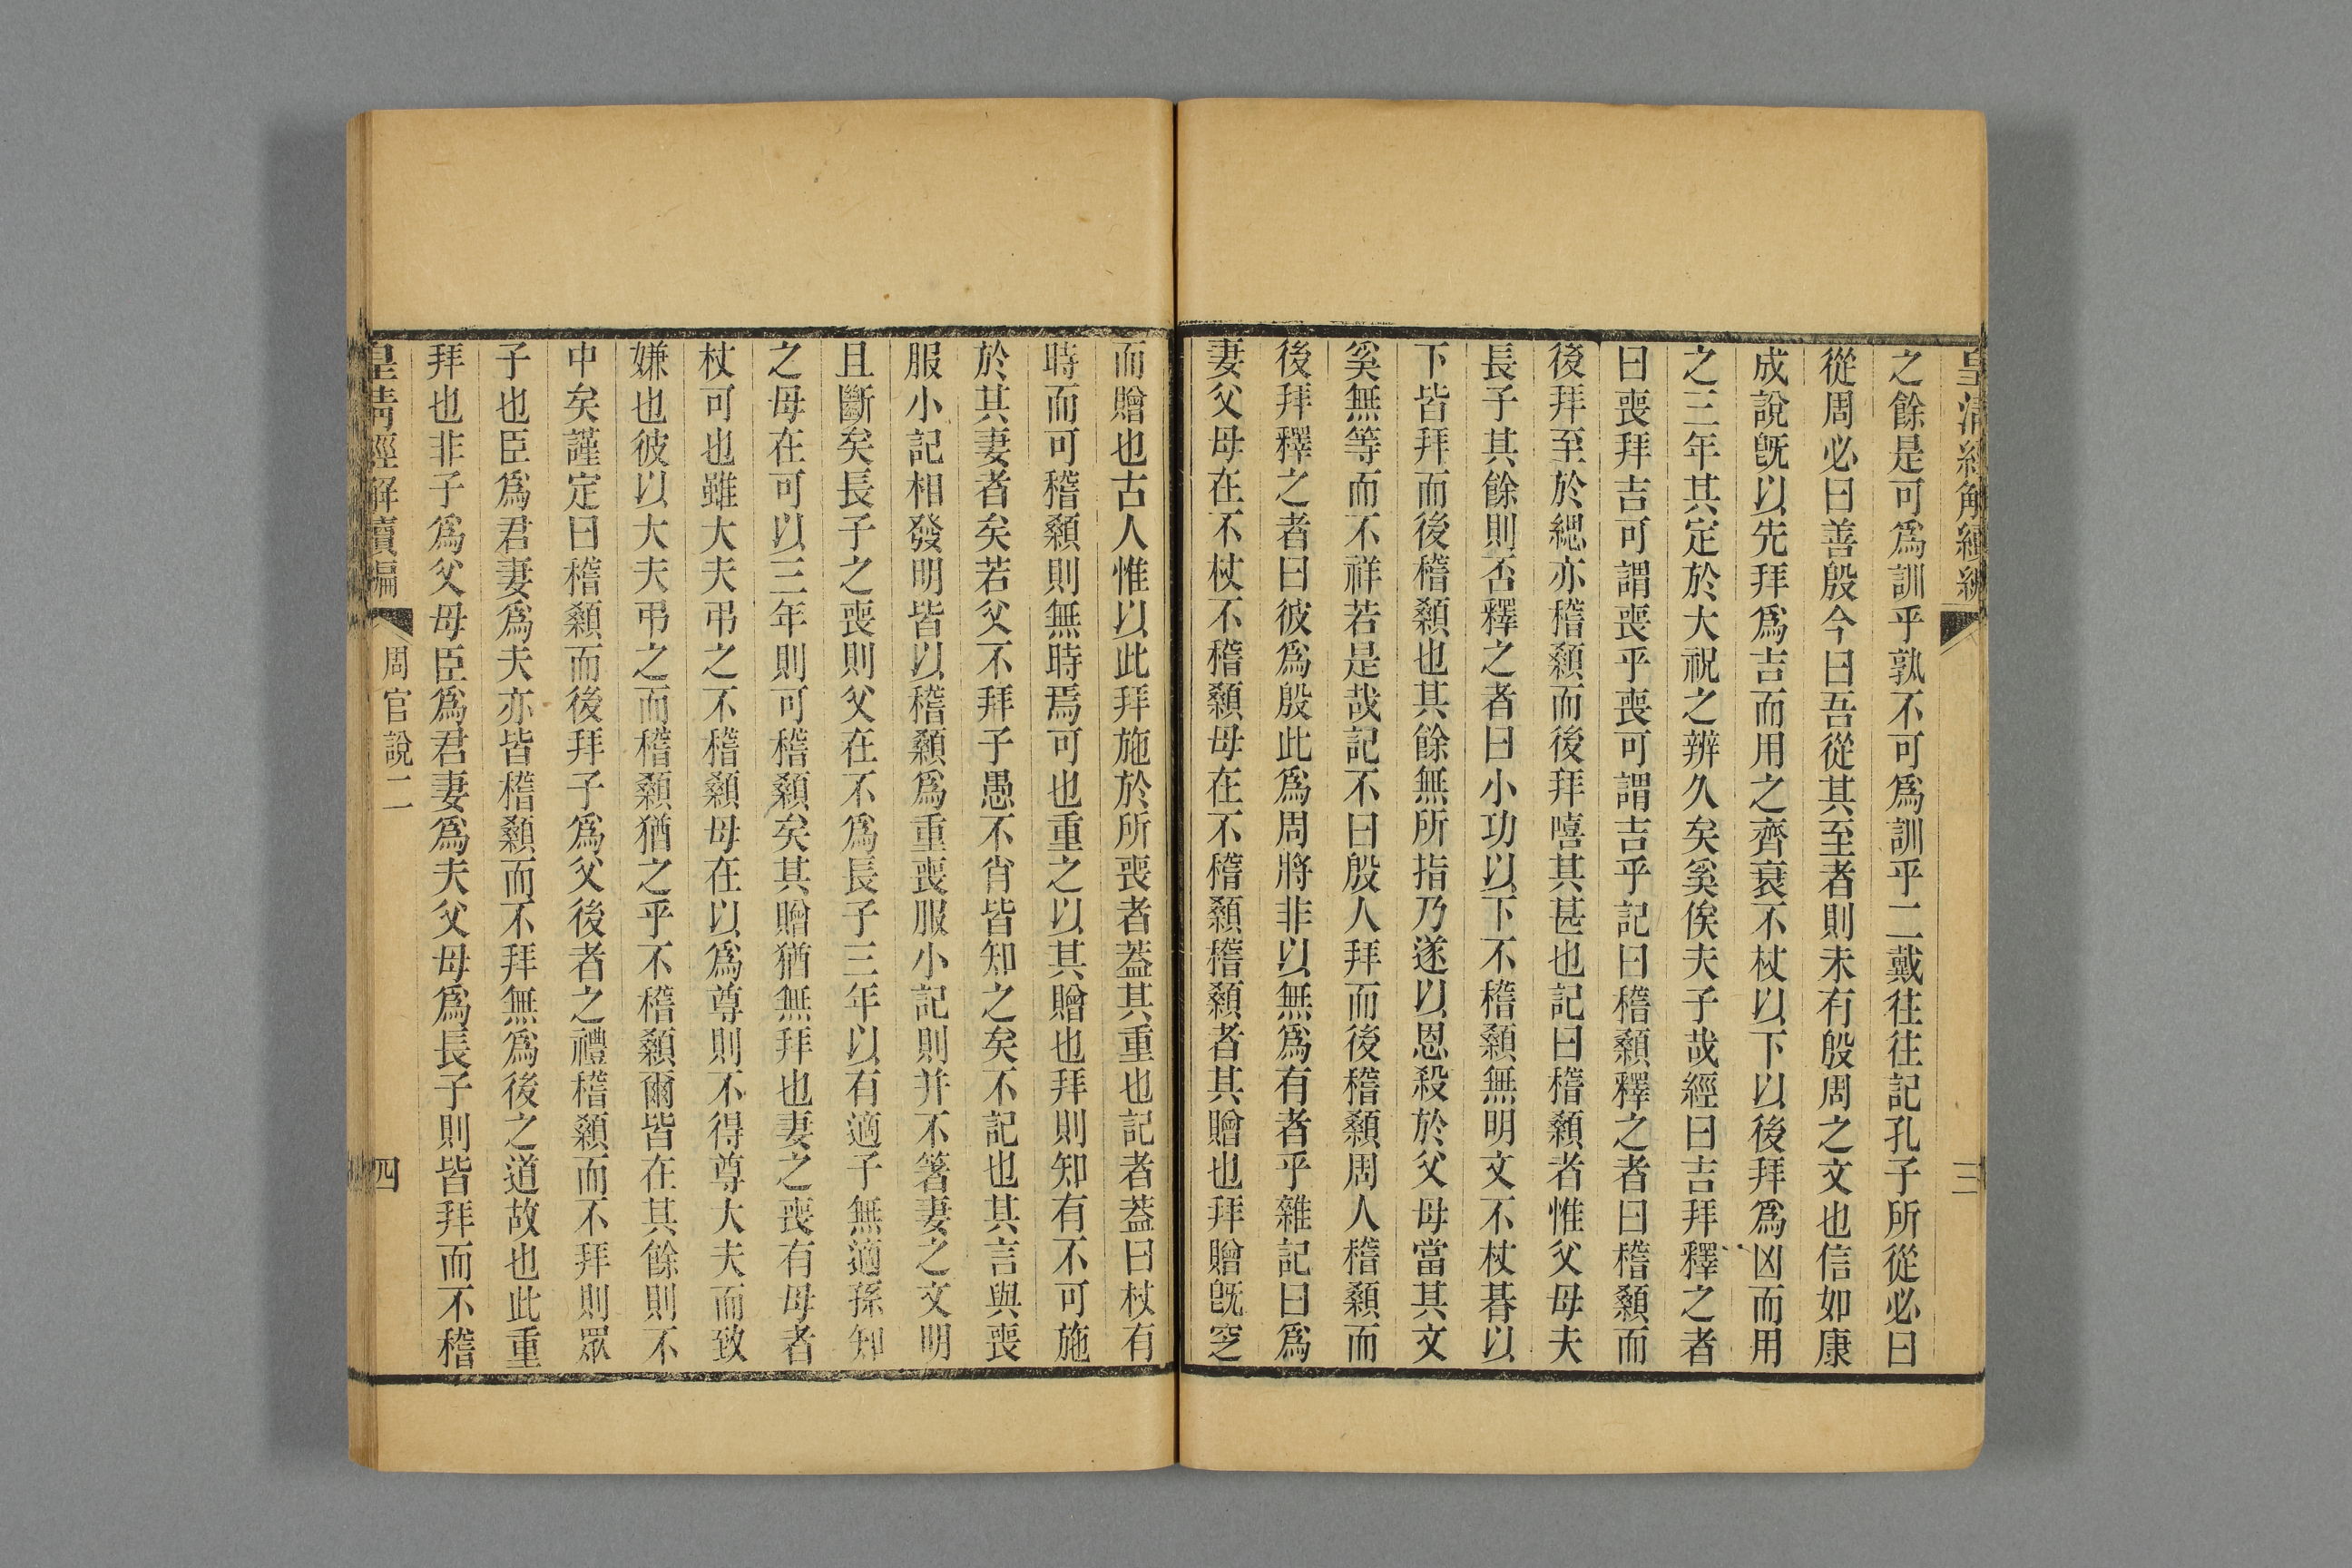 皇清經解續編
三
之餘是可爲訓乎孰不可爲訓乎二戴往往記孔子所從必曰
從周必曰善殷今曰吾從其至者則未有殷周之文也信如康
成說旣以先拜爲吉而用之齊衰不杖以下以後拜爲凶而用
之三年其定於大祝之辨久矣奚俟夫子哉經曰吉拜釋之者
曰喪拜吉可謂喪乎喪可謂吉乎記曰稽顙釋之者曰稽顙而
後拜至於緦亦稽顙而後拜嘻其甚也記曰稽顙者惟父母夫
長子其餘則否釋之者曰小功以下不稽顙無明文不杖朞以
下皆拜而後稽顙也其餘無所指乃遂以恩殺於父母當其文
奚無等而不祥若是哉記不曰殷人拜而後稽顙周人稽顙而
後拜釋之者曰彼爲殷此爲周將非以無爲有者乎雜記曰爲
妻父母在不杖不稽顙母在不稽顙稽顙者其贈也拜贈旣窆
而贈也古人惟以此拜施於所喪者葢其重也記者葢曰杖有
時而可稽顙則無時焉可也重之以其贈也拜則知有不可施
於其妻者矣若父不拜子愚不肖皆知之矣不記也其言與喪
服小記相發明皆以稽顙爲重喪服小記則并不箸妻之文明
且斷矣長子之喪則父在不爲長子三年以有適子無適孫知
之母在可以三年則可稽顙矣其贈猶無拜也妻之喪有母者
杖可也雖大夫弔之不稽顙母在以爲尊則不得尊大夫而致
嫌也彼以大夫弔之而稽顙猶之乎不稽顙爾皆在其餘則不
中矣謹定曰稽顙而後拜子爲父後者之禮稽顙而不拜則眾
子也臣爲君妻爲夫亦皆稽顙而不拜無爲後之道故也此重
拜也非子爲父母臣爲君妻爲夫父母爲長子則皆拜而不稽
皇清經解續編
周官說二
四